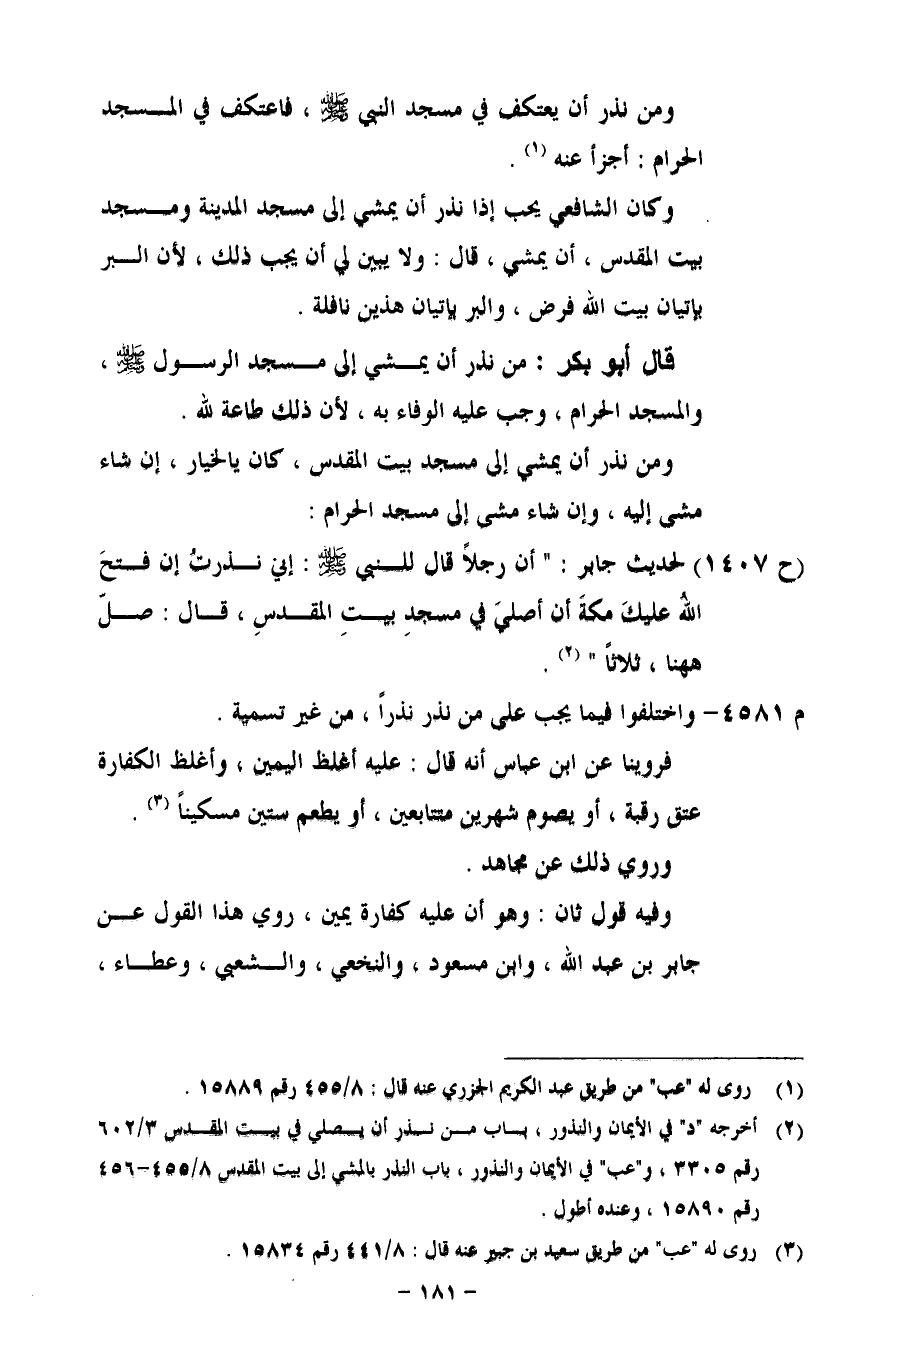 ومن نذر أن يعتكف في مسجد النبي ﷺ ، فاعتكف في المسجد
الحرام : أجزأ عنه (١) .
وكان الشافعي يحب إذا نذر أن يمشي إلى مسجد المدينة ومسجد
بيت المقدس ، أن يمشي ، قال : ولا يبين لي أن يجب ذلك ، لأن البر
بإتيان بيت الله فرض ، والبر بإتيان هذين نافلة .
قال أبو بكر : من نذر أن يمشي إلى مسجد الرسول ﷺ ،
والمسجد الحرام ، وجب عليه الوفاء به ، لأن ذلك طاعة لله .
ومن نذر أن يمشي إلى مسجد بيت المقدس ، كان بالخيار ، إن شاء
مشى إليه ، وإن شاء مشى إلى مسجد الحرام :
(ح ١٤٠٧) لحديث جابر : " أن رجلاً قال للنبي ﷺ : إني نذرتُ إن فتحَ
اللهُ عليكَ مكةَ أن أصليَ في مسجدِ بيتِ المقدسِ ، قال : صلّ
ههنا ، ثلاثاً " (٢) .
م ٤٥٨١- واختلفوا فيما يجب على من نذر نذراً ، من غير تسمية .
فروينا عن ابن عباس أنه قال : عليه أغلظ اليمين ، وأغلظ الكفارة
عتق رقبة ، أو يصوم شهرين متتابعين ، أو يطعم ستين مسكيناً (٣) .
وروي ذلك عن مجاهد .
وفيه قول ثان : وهو أن عليه كفارة يمين ، روي هذا القول عن
جابر بن عبد الله ، وابن مسعود ، والنخعي ، والشعبي ، وعطاء ،
(١) روى له "عب" من طريق عبد الكريم الجزري عنه قال : ٤٥٥/٨ رقم ١٥٨٨٩ .
(٢) أخرجه "د" في الأيمان والنذور ، باب من نذر أن يصلي في بيت المقدس ٦٠٢/٣
رقم ٣٣٠٥ ، و"عب" في الأيمان والنذور ، باب النذر بالمشي إلى بيت المقدس ٤٥٥/٨-٤٥٦
رقم ١٥٨٩٠ ، وعنده أطول .
(٣) روى له "عب" من طريق سعيد بن جبير عنه قال : ٤٤١/٨ رقم ١٥٨٣٤ .
- ١٨١ -